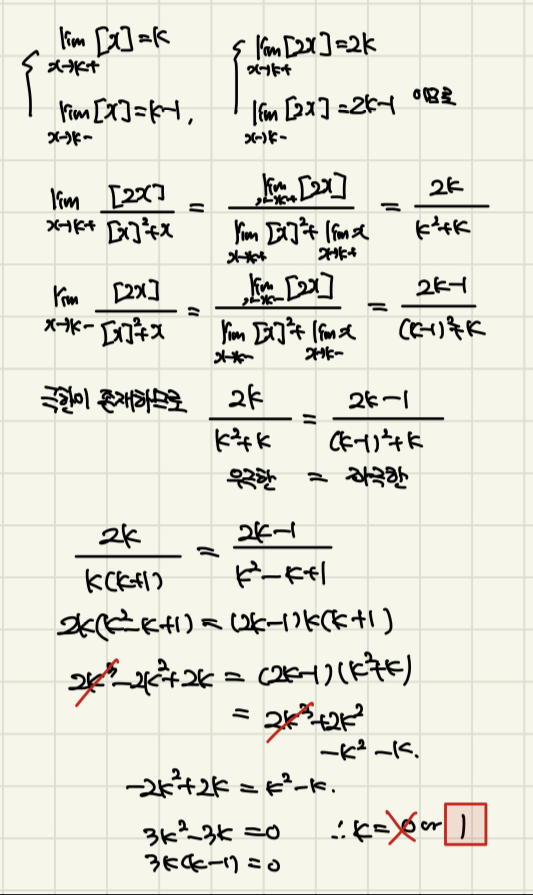 lim x→k+ [x]=k    lim x→k+ [2x]=2k
lim x→k- [x]=k-1,    lim x→k- [2x]=2k-1 이므로
lim x→k+ [2x]/([x]²+x) = lim x→k+ [2x]/(lim x→k+ [x]²+lim x→k+ x) = 2k/(k²+k)
lim x→k- [2x]/([x]²+x) = lim x→k- [2x]/(lim x→k- [x]²+lim x→k- x) = (2k-1)/((k-1)²+k)
극한이 존재하므로 2k/(k²+k) = (2k-1)/((k-1)²+k)
우극한 = 좌극한
2k/(k(k+1)) = (2k-1)/(k²-k+1)
2k(k²-k+1) = (2k-1)k(k+1)
2k³-2k²+2k = (2k-1)(k²+k)
= 2k³+2k²
-k²-k.
-2k²+2k = k²-k.
3k²-3k=0    ∴ k=0 or 1
3k(k-1)=0